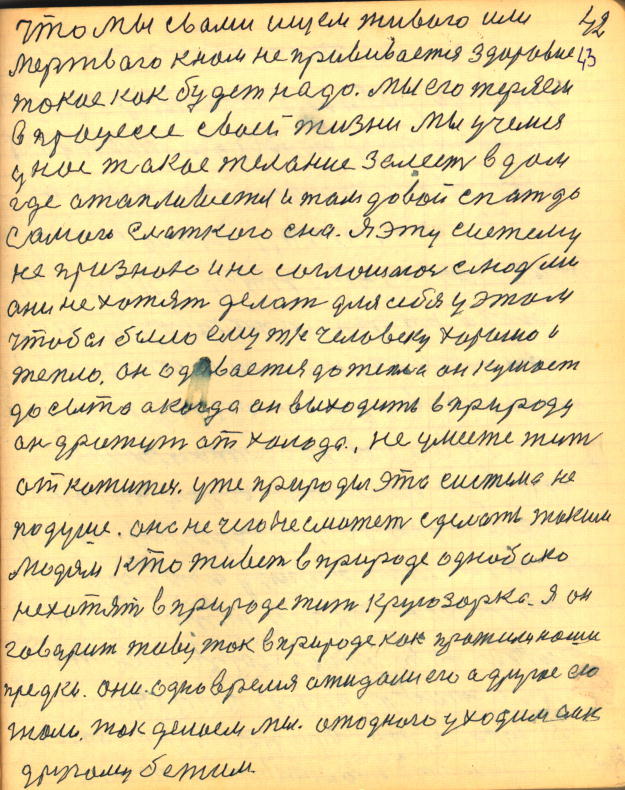 42
что мы свами ищем живого или
мертвого кнам не прививается здоровие 43
токое как будет надо. мы его теряем
в процессе своей жизни мы учемся
у нас такое желание залест в дом
где отапливется и там довой спат до
самого слаткого сна. я эту систему
не признаю и не соглошаюс слюдми
они не хотят делат для себя у этом
чтобы было ему тже человеку хорошо и
тепло. он одевается до тепла он кушает
до сыта а когда он выходить в природу
он дрижит от холода., не умеете жит
откажитеся. уже природы эта система не
подуше. она не чего несможет сделать таким
людям кто живет в природе однобоко
нехотят в природе жит кругозорка. я он
говарит живу так в природе как прожили наши
предки. они одно время ожидали его а другое его
жали. так делаем мы. отодного уходим ак
другому бежим.